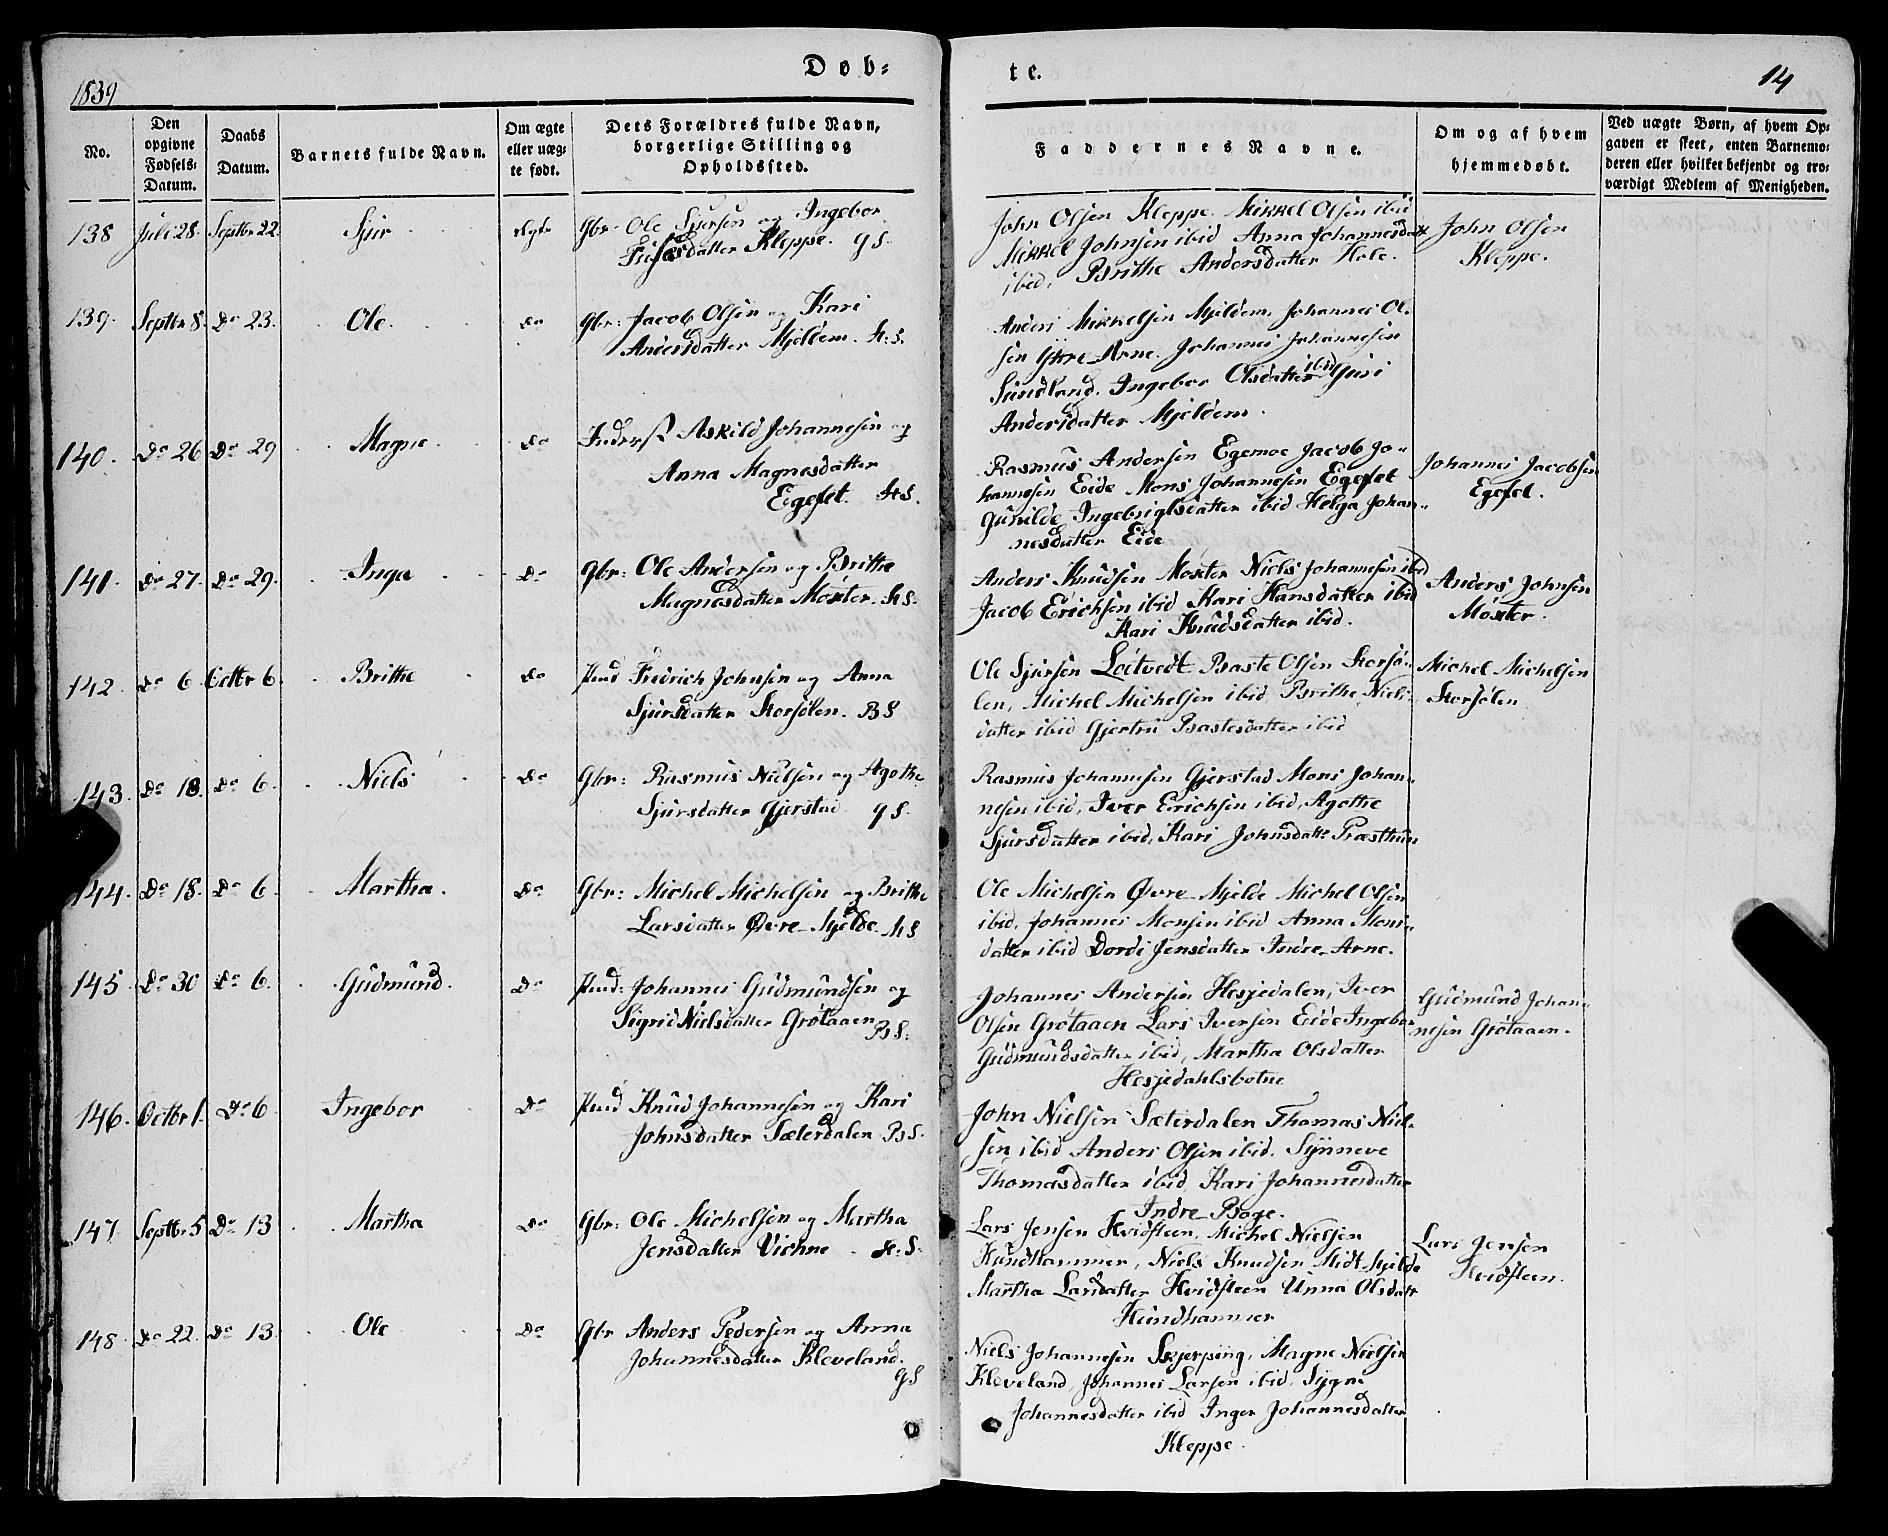 1839
Døb=
te.
14
No.
Den opgivne Fødsels-Datum.
Daabs Datum.
Barnets fulde Navn.
Om ægte eller uæg-te født.
Dets Forældres fulde Navn, borgerlige Stilling og Opholdssted.
Faddernes Navne.
Om og af hvem hjemmedøbt.
Ved uægte Børn, af hvem Op-gaven er skeet, enten Barnemo-deren eller hvilket bekjendt og tro-værdigt Medlem af Menigheden.
138 Juli 28. Septbr 22. Sjur Ægte Gbr. Ole Sjursen og Ingebor
datter Kleppe. G S.
John Olsen Kleppe. Mikkel Olsen ibid
Mikkel Johnsen ibid Anna Johannesdatt
ibid, Brithe Andersdatter Hole.
John Olsen
Kleppe.
139. Septbr 8. Do 23. Ole. Do Gbr: Jacob Olsen og Kari
Andersdatter Mjeldem. H. S.
Anders Mikkelsen Mjeldem. Johannes Ol-
sen Ytre-Arne. Johannes Johannesen
Sundland. Ingebor Olsdatter ibid Guri
Andersdatter Mjeldem.
140. Do 26 Do 29 Magne Do Inderst Askild Johannesen og
Anna Magnesdatter
Egeset. H S.
Rasmus Andersen Egemoe Jacob Jo-
hannesen Eide Mons Johannesen Egeset
Gunilde Ingebrigtsdatter ibid Helga Johan-
nesdatter Eide
Johannes Jacobsen
Egeset.
141. Do 27. Do 29. Inga Do Gbr: Ole Andersen og Brithe
Magnesdatter Moster. H S.
Anders Knudsen Moster Niels Johannesen ibid
Jacob Erichsen ibid Kari Hansdatter ibid
Kari Knudsdatter ibid.
Anders Johnsen
Moster.
142. Do 6 Octbr 6. Brithe Do Pmd Fredrich Johnsen og Anna
Sjursdatter Storsølen. B S
Ole Sjursen Loitvedt Baste Olsen Storsø-
len, Michel Michelsen ibid Brithe Niels-
datter ibid Gjertru Bastesdatter ibid
Michel Michelsen
Storsølen
143. Do 18. Do 6. Niels Do Gbr: Rasmus Nielsen og Agothe
Sjursdatter Gjerstad G S.
Rasmus Johannesen Gjerstad Mons Johan-
nesen ibid, Iver Erichsen ibid, Agethe
Sjursdatter ibid, Kari Johnsdatt Præsthun
144. Do 18. Do 6 Martha. Do Gbr: Michel Michelsen og Brithe
Larsdatter Øvre-Mjelde. H S
Ole Michelsen Øvre-Mjelde Michel Olsen
ibid. Johannes Monsen ibid Anna Mons-
datter ibid Dordi Jensdatter Indre-Arne.
145 Do 30 Do 6. Gudmund. Do Pmd: Johannes Gudmundsen og
Sigrid Nielsdatter Grøtaaen B S.
Johannes Andersen Hesjedalen, Iver
Olsen Grøtaaen Lars Iversen Eide Ingebor
Gudmundsdatter ibid, Martha Olsdatter
Hesjedahlsbotne
Gudmund Johan-
nesen Grøtaaen.
146. Octbr 1. Do 6 Ingebor Do Pmd Knud Johannesen og Kari
Johnsdatter Sæterdalen B S.
John Nielsen Sæterdalen Thomas Niel-
sen ibid Anders Olsen ibid. Synneve
Thomasdatter ibid Kari Johannesdatter
Indre Boge.
147 Septbr 5 Do 13 Martha Do Gbr: Ole Michelsen og Martha
Jensdatter Vichne H. S.
Lars Jensen Hvidsteen, Michel Nielsen
Hundhammer, Niels Knudsen Midt Mjelde
Martha Larsdatter Hvidsteen Unna Olsdatt
Hundhammer
Lars Jensen
Hvidsteen.
148. Do 22. Do 13 Ole Do Gbr Anders Pedersen og Anna
Johannesdatter Kleveland.
G S
Niels Johannesen Skjerping, Magne Nielsen
Kleveland, Johannes Larsen ibid, Sygne
Johannesdatter ibid Inger Johannesdatter
Kleppe.